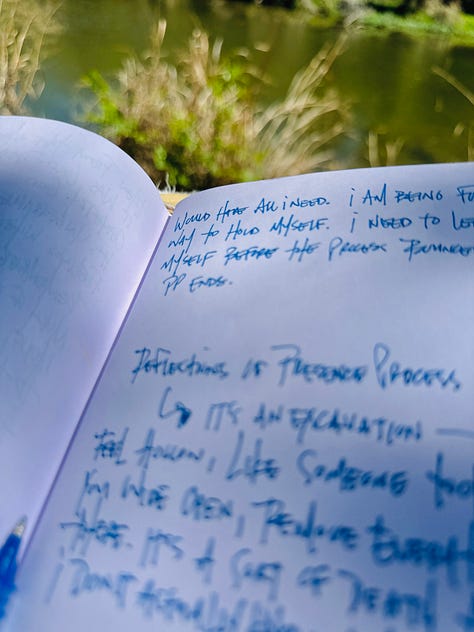 WOULD HAVE ALL I NEED. I AM BEING FO
WAY TO HOLD MYSELF. I NEED TO LE
MYSELF BEFORE THE PROCESS
PP ENDS.
REFLECTIONS OF PRESENCE PROCESS
↳ IT'S AN EXCAVATION —
FEEL HOLLOW, LIKE SOMEONE TOO
I'M WIDE OPEN, REMOVE EVERYTH
THERE. IT'S A SORT OF DEATH
I DON'T ACTUALLY